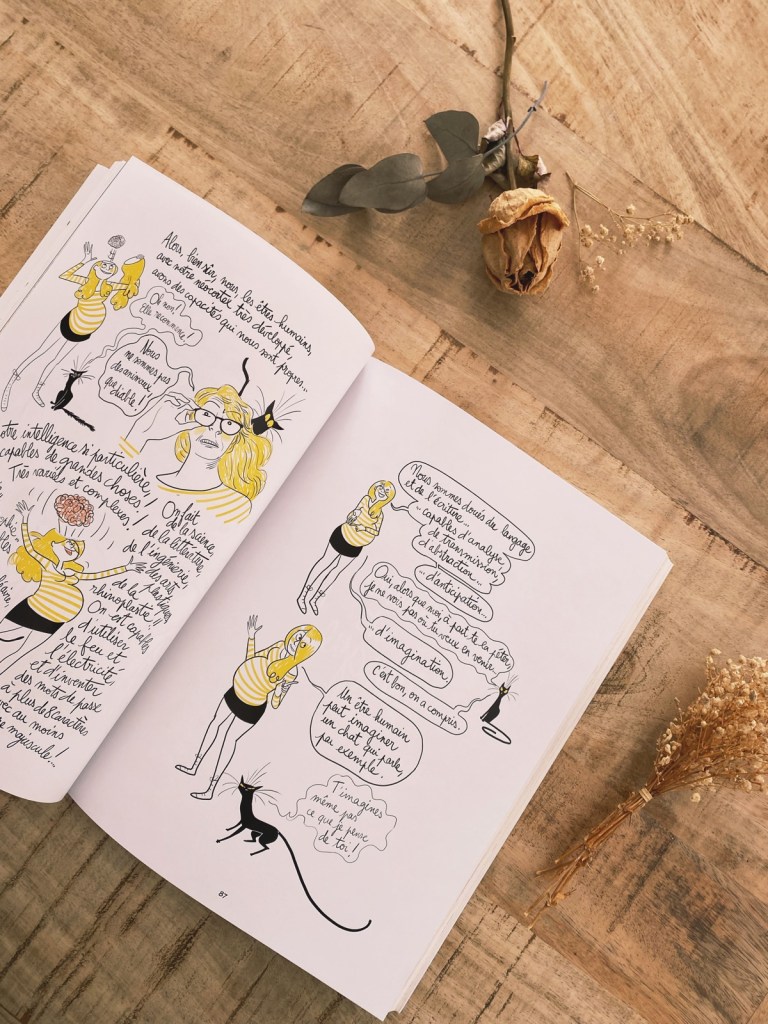 Alors, bien sûr, nous, les êtres humains,
avec notre néocortex très développé,
avons des capacités qui nous sont propres...
Oh non!
Elle recommence!
Nous
ne sommes pas
des animaux
que diable!!
intelligence si particulière,
capables de grandes choses!
Très variées et complexes!
On fait
de la science,
de la littérature,
de l'ingénierie,
des arts
plastiques,
de la
rhinoplastie!
On est capables
d'utiliser
le feu et
l'électricité
et d'inventer
des mots de passe
à plus de 8 caractères
avec au moins
majuscule...
Nous sommes doués du langage
et de l'écriture...
... capables d'analyse,
de transmission,
d'abstraction...
... d'anticipation.
Oui, alors que moi, à part te la péter,
je ne vois pas où tu veux en venir.
... d'imagination.
C'est bon, on a compris.
Un être humain
peut imaginer
un chat qui parle,
par exemple.
T'imagines
même pas
ce que je pense
de toi!
87